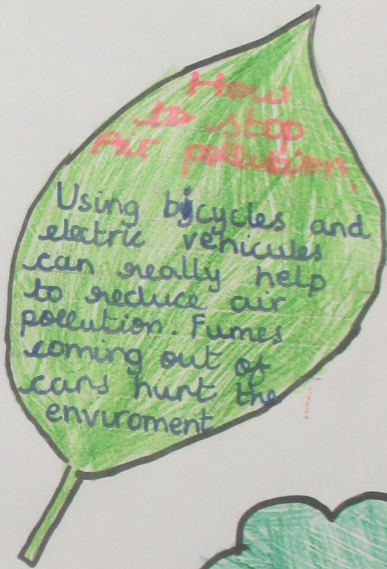 How
to stop
Air pollution
Using bicycles and
eletric vehicules
can really help
to reduce air
pollution. Fumes
coming out of
cars hurt the
enviroment